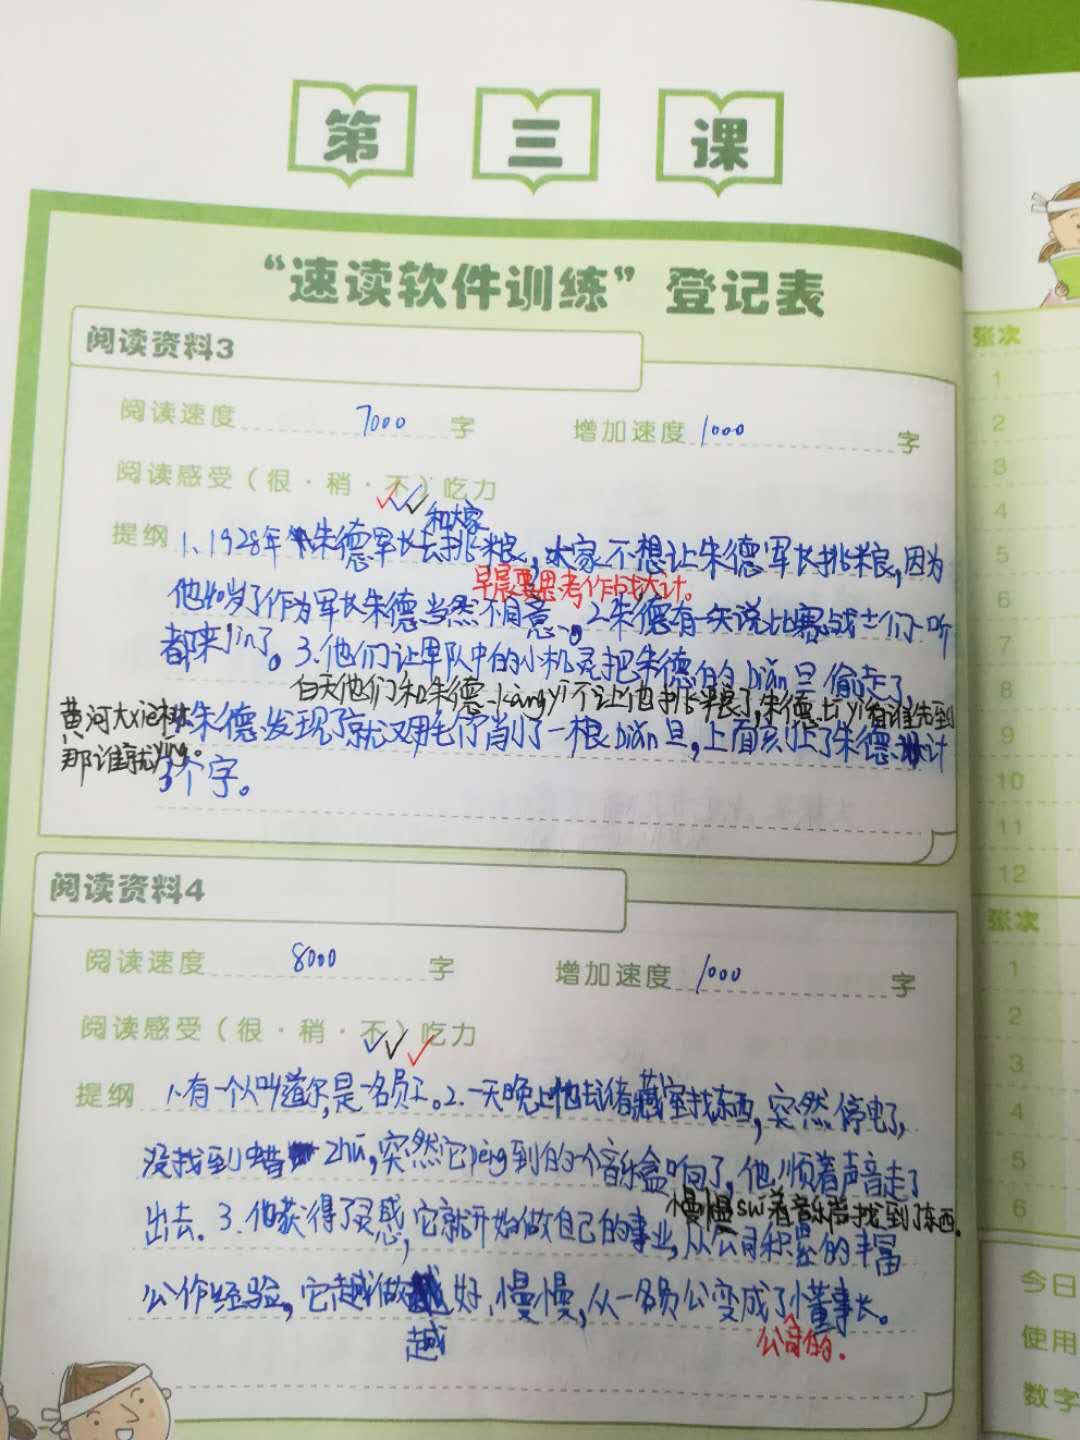 第三课
“速读软件训练”登记表
阅读资料3
阅读速度 7000 字 增加速度 1000 字
阅读感受（很·稍·不）吃力
和大家
提纲 1、1928年朱德军长去挑粮，大家不想让朱德军长挑粮，因为
早晨要思考作战大计。
他40岁了作为军长朱德当然不同意。2.朱德有一天说比赛战士们一听
都来jin了。3.他们让军队中的小机灵把朱德的biǎn旦偷走了，
白天他们和朱德kàngyì不让他挑粮了，朱德tíyì看谁先到
黄河大xié树
朱德发现了就又用毛竹削了一根biǎn旦，上面刻上了朱德 计
那谁就yíng。
3个字。
阅读资料4
阅读速度 8000 字 增加速度 1000 字
阅读感受（很·稍·不）吃力
提纲 1.有一个人叫道尔，是一名员工。2.一天晚上他去储藏室找东西，突然停电了，
没找到蜡zhú，突然它pèng到的一个音乐盒响了，他顺着声音走了
慢慢sw着音乐声找到了东西。
出去。3.他获得了灵感，它就开始做自己的事业，从公司积累的丰富
公作经验，它越做越好，慢慢，从一名员公变成了董事长。
越
公司的.
张次
1
2
3
4
5
6
7
8
9
10
11
12
张次
1
2
3
4
5
6
今日
使用
数字